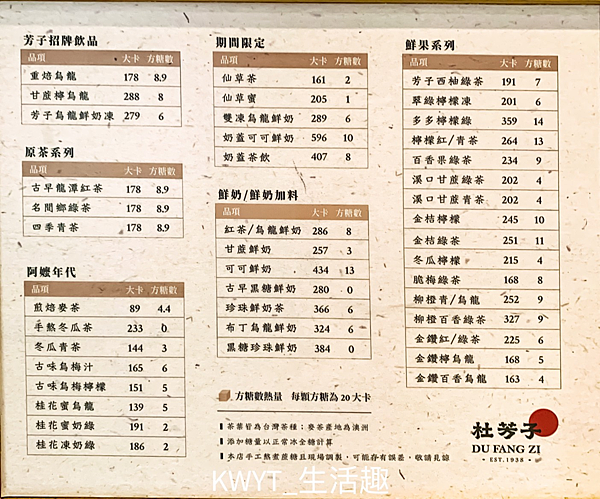 芳子招牌飲品
品項 大卡 方糖數
重焙烏龍 178 8.9
甘蔗檸烏龍 288 8
芳子烏龍鮮奶凍 279 6
原茶系列
品項 大卡 方糖數
古早龍潭紅茶 178 8.9
名間鄉綠茶 178 8.9
四季青茶 178 8.9
阿嬤年代
品項 大卡 方糖數
煎焙麥茶 89 4.4
手熬冬瓜茶 233 0
冬瓜青茶 144 3
古味烏梅汁 165 6
古味烏梅檸檬 151 5
桂花蜜烏龍 139 5
桂花蜜奶綠 191 2
桂花凍奶綠 186 2
期間限定
品項 大卡 方糖數
仙草茶 161 2
仙草蜜 205 1
雙凍烏龍鮮奶 289 6
奶蓋可可鮮奶 596 10
奶蓋茶飲 407 8
鮮奶/鮮奶加料
品項 大卡 方糖數
紅茶/烏龍鮮奶 286 8
甘蔗鮮奶 257 3
可可鮮奶 434 13
古早黑糖鮮奶 280 0
珍珠鮮奶茶 366 6
布丁烏龍鮮奶 324 6
黑糖珍珠鮮奶 384 0
方糖數熱量 每顆方糖為20大卡
茶葉皆為台灣茶種;麥茶產地為澳洲
添加糖量以正常冰全糖計算
本店手工熬煮蔗糖且現場調製,可能存有誤差,敬請見諒
鮮果系列
品項 大卡 方糖數
芳子西柚綠茶 191 7
翠綠檸檬凍 201 6
多多檸檬綠 359 14
檸檬紅/青茶 264 13
百香果綠茶 234 9
溪口甘蔗綠茶 202 4
溪口甘蔗青茶 202 4
金桔檸檬 245 10
金桔綠茶 251 11
冬瓜檸檬 215 4
脆梅綠茶 168 8
柳橙青/烏龍 252 9
柳橙百香綠茶 327 9
金鑽紅/綠茶 225 6
金鑽檸烏龍 168 5
金鑽百香烏龍 163 4
杜芳子
DU FANG ZI
EST.1938
KWYT_生活趣